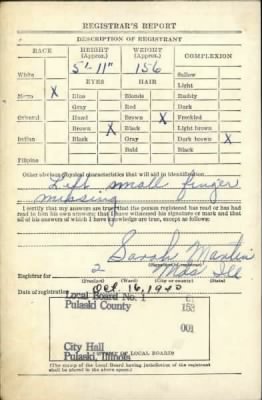 REGISTRAR'S REPORT
DESCRIPTION OF REGISTRANT
RACE HEIGHT (Approx.) WEIGHT (Approx.) COMPLEXION
5'-11" 156
White Sallow
EYES HAIR Light
Negro X Blue Blonde Ruddy
Gray Red Dark
Oriental Hazel Brown X Freckled
Brown X Black Light brown
Indian Black Gray Dark brown X
Bald Black
Filipino
Other obvious physical characteristics that will aid in identification
Left small finger
missing
I certify that my answers are true; that the person registered has read or has had
read to him his own answers; that I have witnessed his signature or mark and that
all of his answers of which I have knowledge are true, except as follows:
Sarah Martin
(Signature of registrar)
Registrar for 2 Ill
(Precinct) (Ward) (City or county) (State)
Date of registration Oct. 16, 1940
Local Board No. 1
Pulaski County 153
001
City Hall
Pulaski, Illinois
(STAMP OF LOCAL BOARD)
(The stamp of the Local Board having jurisdiction of the registrant
shall be placed in the above space.)